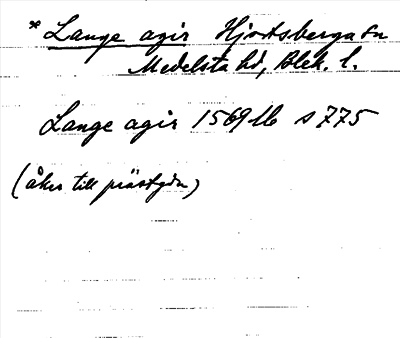 * Lange agir Hjortsberga sn
Medelsta hd, Blek. l.
Lange agir 1569 Jb s 775
(åker till prästgdn)